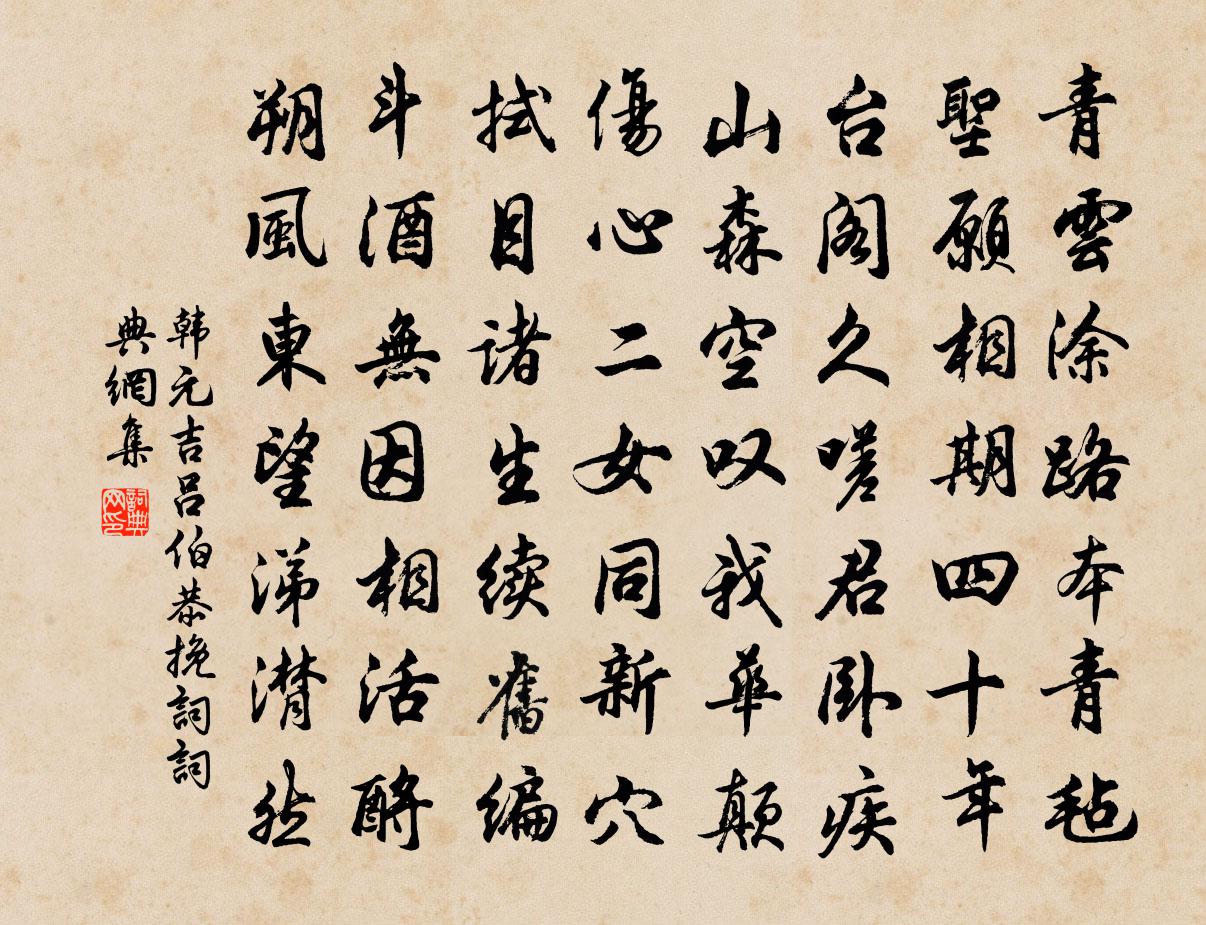 青雲涂路本青毡
聖願相期四十年
台阁久嗟君卧疾
山森空叹我華颠
傷心二女同新穴
拭目诸生续舊编
斗酒無因相活酹
朔風東望涕潸然
韩元吉吕伯恭挽詞詞
典網集
詞典
网印